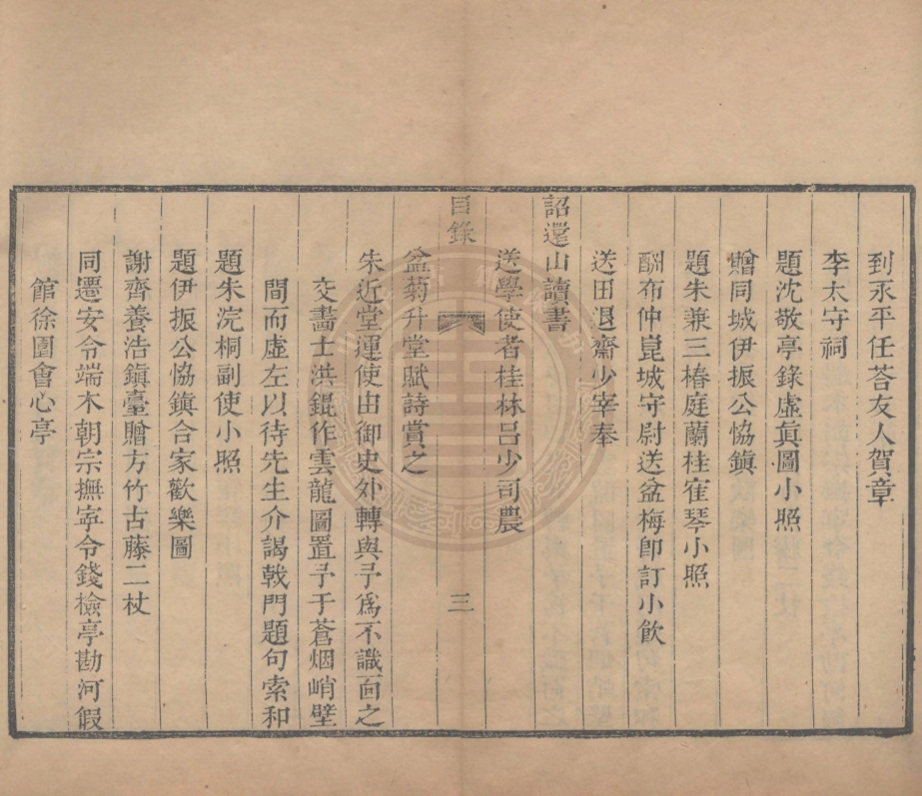 到永平任荅友人賀章
李太守祠
題沈敬亭錄虛眞圖小照
贈同城伊振公恊鎭
題朱兼三椿庭蘭桂隺琴小照
酬布仲崑城守尉送盆梅卽訂小飲
送田退齋少宰奉
詔還山讀書
送學使者桂林吕少司農
目錄
三
盆菊升堂賦詩賞之
朱近堂運使由御史外轉與予爲不識面之
交畵士洪錕作雲龍圖置予于蒼烟峭壁
間而虛左以待先生介謁戟門題句索和
題朱浣桐副使小照
題伊振公恊鎭合家歡樂圖
謝齊養浩鎭臺贈方竹古藤二杖
同遷安令端木朝宗撫寜令錢檢亭勘河假
館徐圍會心亭